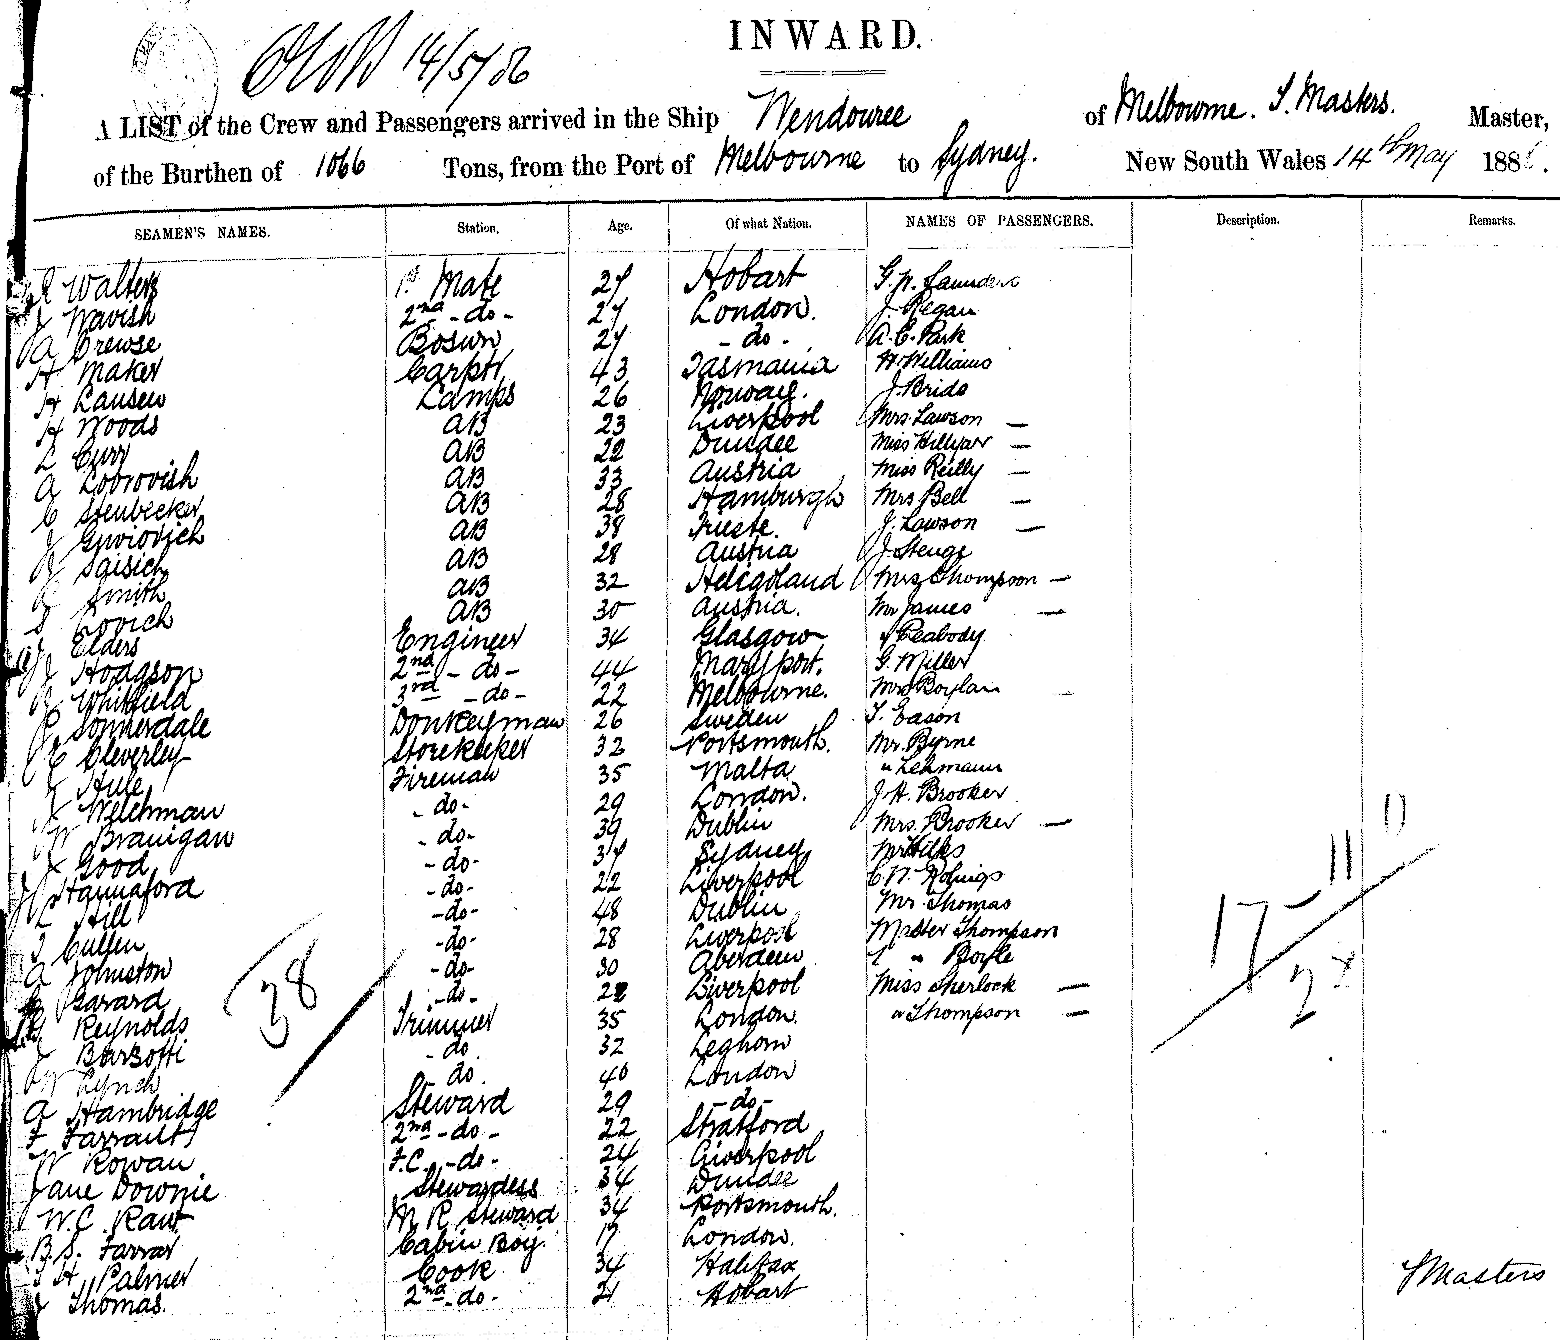 14/5/86
INWARD.
A LIST of the Crew and Passengers arrived in the Ship Wendouree of Melbourne. S. Masters. Master,
of the Burthen of 1066 Tons, from the Port of Melbourne to Sydney. New South Wales 14th May 188
SEAMEN'S NAMES. Station. Age. Of what Nation. NAMES OF PASSENGERS. Description. Remarks.
Walters 1st Mate 27 Hobart G. N. Saunders
J Navish 2nd - do - 27 London. J. Regan
A Crewse Bosun 27 - do - A. E. Park
H Maker Carptr 43 Tasmania W. Williams
H Lausen Lamps 26 Norway. J. Brids
H Woods AB 23 Liverpool Mrs Lawson —
L Curr AB 22 Dundee Miss Hillyar —
A Lobrovish AB 33 Austria Miss Reilly —
C Steubecker AB 28 Hamburgh Mrs Bell —
J AB 38 Trieste. J. Lawson —
Saisich AB 28 Austria J Stenge
Smith AB 32 Heligoland Mrs Thompson —
S Covich AB 30 Austria. Mr James —
J Elders Engineer 34 Glasgow " Peabody
J Hodgson 2nd - do - 44 Maryport. G. Miller
Whitfield 3rd - do - 22 Melbourne. Mrs Boylan —
P. Sonnerdale Donkeyman 26 Sweden T. Eason
E Cleverley Storekeeper 32 Portsmouth. Mr. Byrne
J Hule Fireman 35 Malta " Lehmann
Welchman - do - 29 London. J. H. Brooker
W Branigan - do - 39 Dublin Mrs. Brooker —
J Good - do - 37 Sydney Mr Hilks
Hannaford - do - 22 Liverpool C. N. Rohings
L Hill - do - 48 Dublin Mr. Thomas
J Cullen - do - 28 Liverpool Master Thompson
A Johnston - do - 30 Aberdeen " Boyle
Garard - do - 22 Liverpool Miss Sherlock —
Reynolds Trimmer 35 London. " Thompson —
J Barsotti - do 32 Leghorn
W Lynch - do. 40 London
A Hambridge Steward 29 - do -
F Farrault 2nd - do - 22 Stratford
W Rowan F.C. - do - 24 Liverpool
Jane Downie Stewardess 34 Dundee
W. C. Raw M R Steward 34 Portsmouth.
B. S. Farrar Cabin Boy. 17 London.
H Palmer Cook 34 Halifax
J Thomas. 2nd - do - 21 Hobart
38
17 - 11
2
S Masters